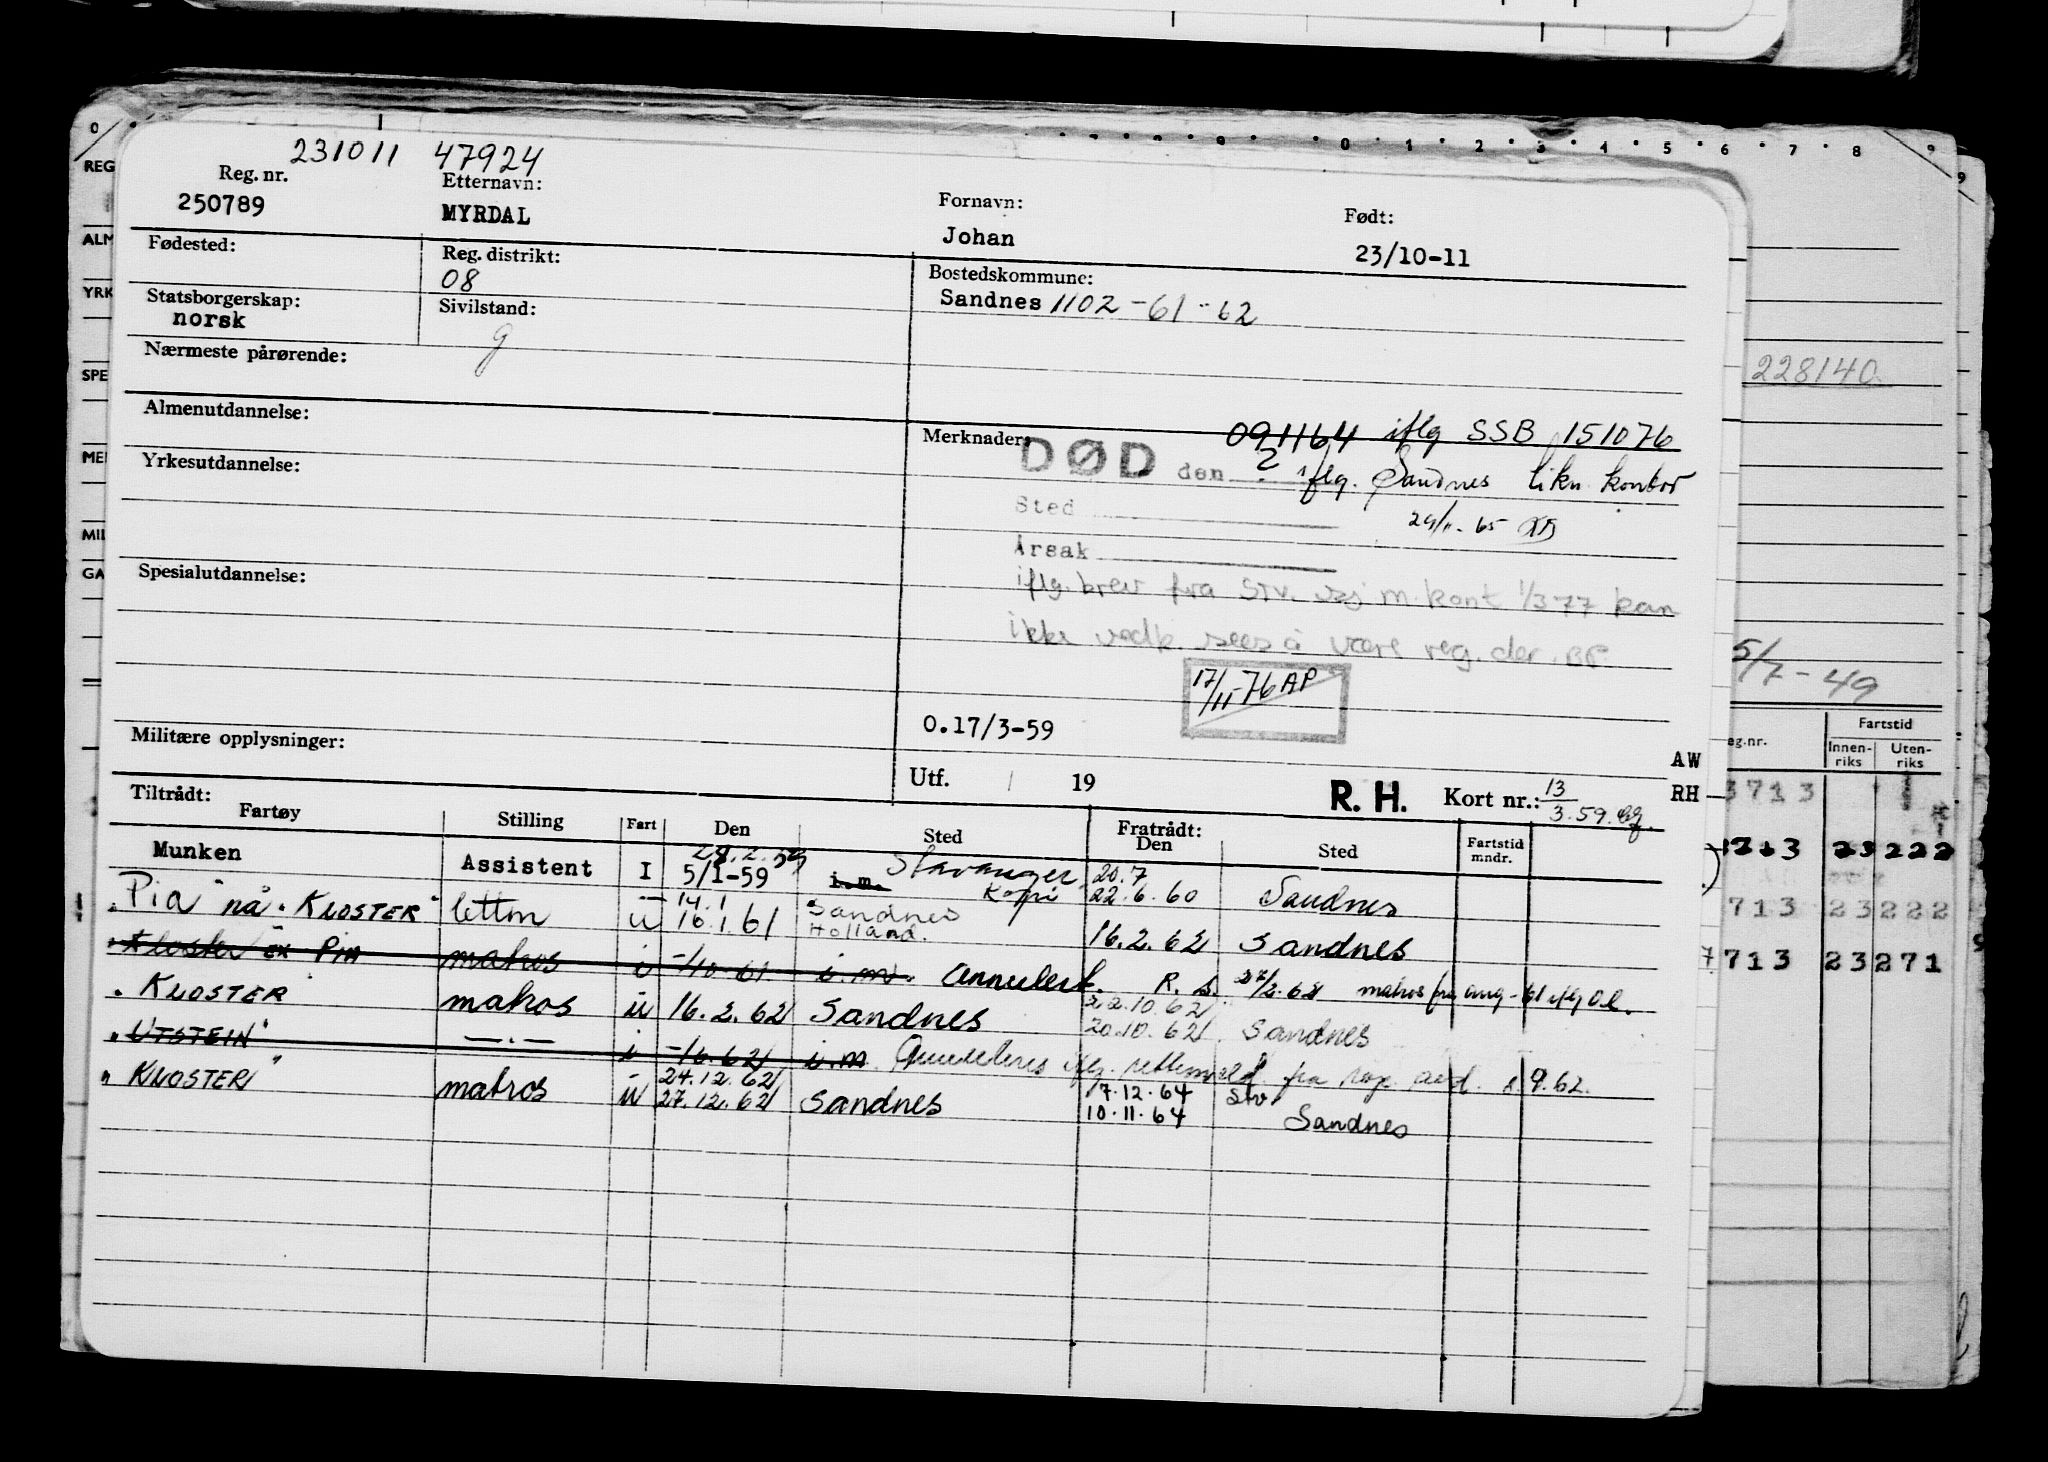 0 1 2 3 4 5 6 7 8 9
231011 47924
REG
Reg. nr. Etternavn: Fornavn: Født:
250789 MYRDAL Johan 23/10-11
ALM
Fødested: Reg. distrikt: Bostedskommune:
08 Sandnes 1102 -61 -62
YRK
Statsborgerskap: Sivilstand:
norsk g
Nærmeste pårørende:
228140
SPE
Almenutdannelse: Merknader: 091164 iflg SSB 151076
DØD den ? iflg. Sandnes likn. kontor
Yrkesutdannelse: Sted 29/11-65
MIL
Årsak
GA
iflg. brev fra Stv. sj m. kont 1/3-77 kan
Spesialutdannelse:
ikke vedk. sees å være reg. der. BF.
5/7-49
17/11-76 AP
0.17/3-59
Militære opplysninger:
Utf. 19 R. H. Kort nr.: 13/3.59.
AW
RH
eg.nr. Fartstid
Innen-riks Uten-riks
Tiltrådt: Fratrådt:
Fartøy Stilling Fart Den Sted Den Sted Fartstid mndr.
28.2.59 Stavanger 20.7
Munken Assistent I 5/1-59 i.m. Kopi 22.6.60 Sandnes
14.1 Sandnes
"Pia" nå "KLOSTER" lettm u 16.1.61 Holland. 16.2.62 Sandnes
Kloster ex PIA matros i -/10-61 i.m. Annullert. R.S. 27/2.62 matros fra aug -61 iflg O.l.
22.10.62
"KLOSTER matros u 16.2.62 Sandnes 20.10.62 Sandnes
"UTSTEIN" —.— i -/6.62 i.m. Annulleres iflg. rettemeld. fra 9.62.
24.12.62 17.12.64 Stv
"KLOSTER" matros u 27.12.62 Sandnes 10.11.64 Sandnes
3713
3713 23222
713 23222
713 23271